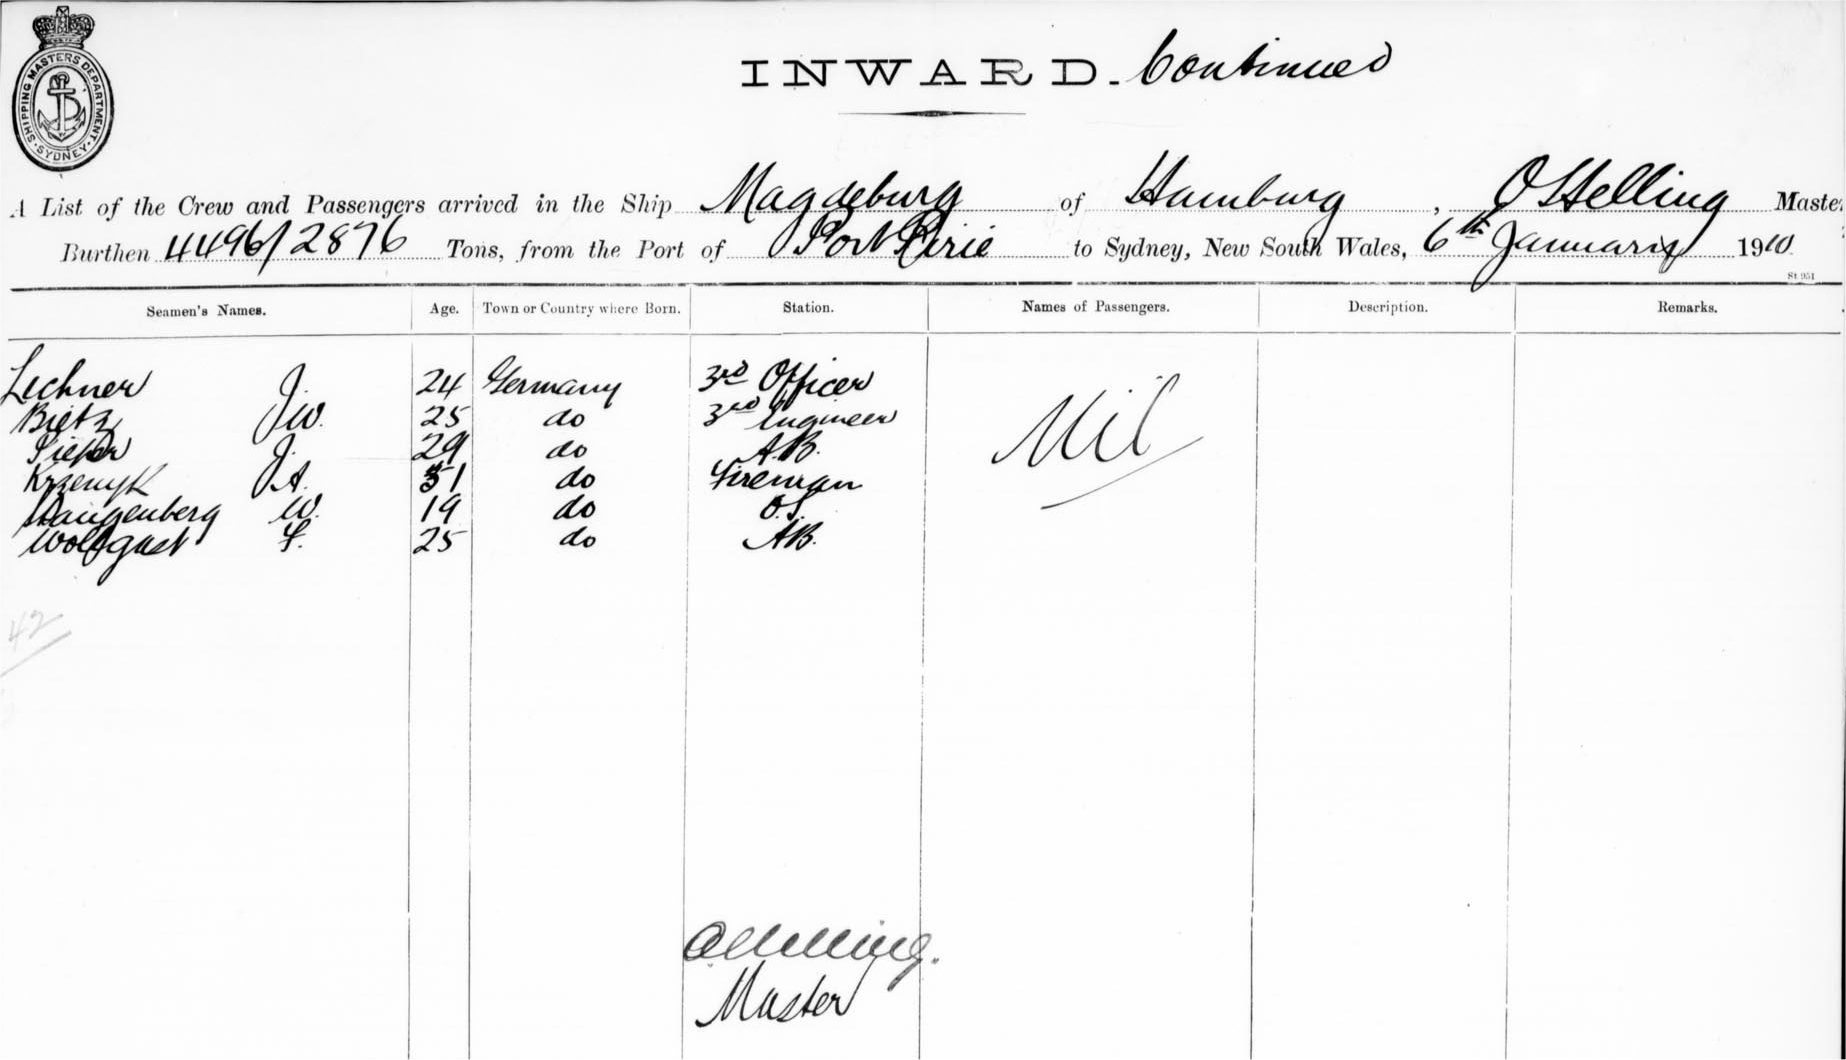 SHIPPING MASTERS DEPARTMENT. SYDNEY.
INWARD. Continued
A List of the Crew and Passengers arrived in the Ship Magdeburg of Hamburg, O Helling Master
Burthen 4496/2876 Tons, from the Port of Port Pirie to Sydney, New South Wales, 6th January 1910
St 951
Seamen's Names. Age. Town or Country where Born. Station. Names of Passengers. Description. Remarks.
Lechner J. 24 Germany 3rd Officer Nil
Bietz J W. 25 do 3rd Engineer
Pieper J. 29 do A.B.
J A. 31 do Fireman
W. 19 do O.S.
Wolfgast F. 25 do AB.
42
O Helling.
Master